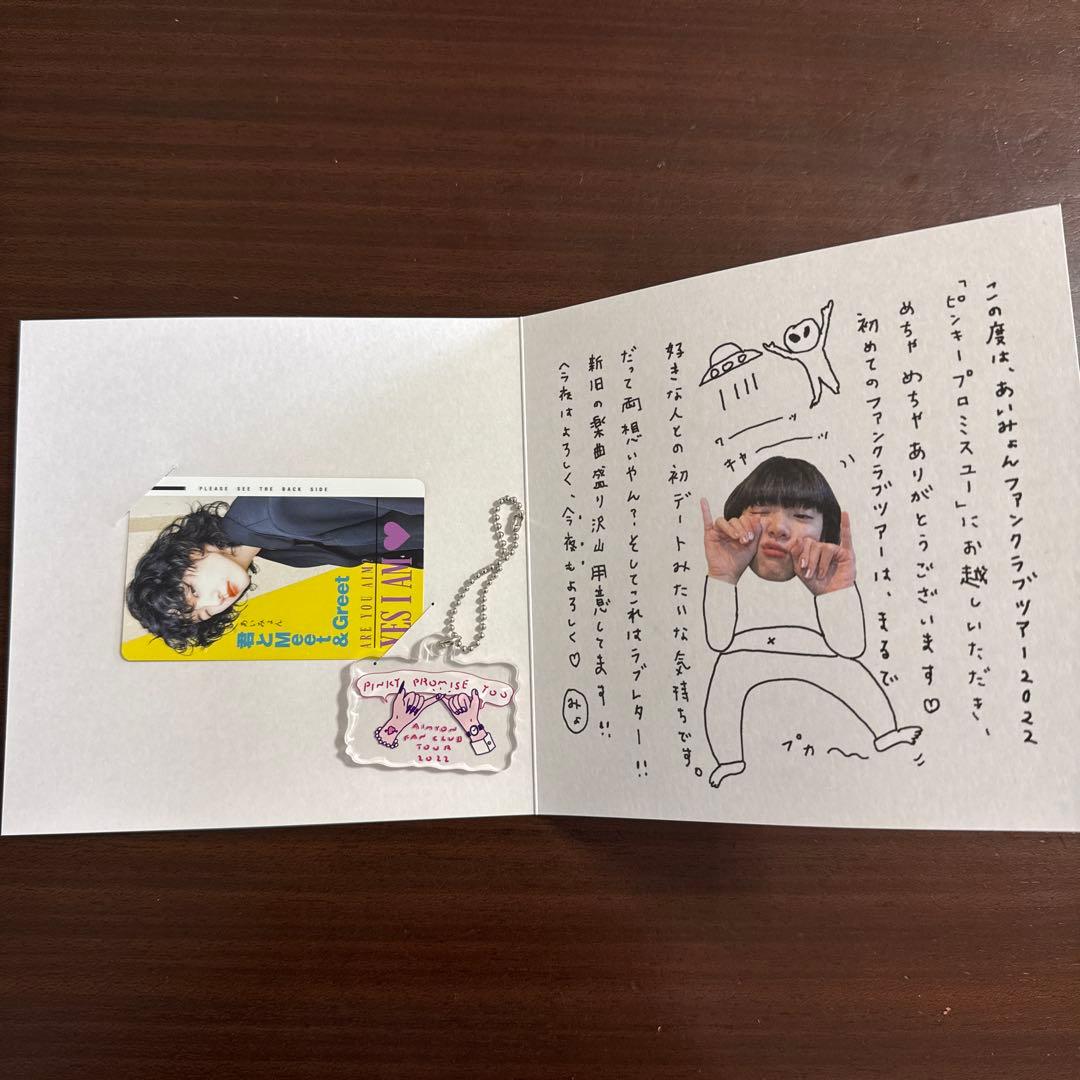 PLEASE SEE THE BACK SIDE
あいみょん
君と
Meet
& Greet
ARE YOU AIM?
YES I AM.
PINKY PROMISE YOU
AIMYON
FAN CLUB
TOUR
2022
この度は、あいみょんファンクラブツアー2022
「ピンキープロミスユー」にお越しいただき、
めちゃめちゃありがとうございます♡
初めてのファンクラブツアーは、まるで
好きな人との初デートみたいな気持ちです。
だって両想いやん?そしてこれはラブレター!!
新旧の楽曲盛り沢山用意してます!!
今夜はよろしく、今夜もよろしく♡
みょ
ワーーッ
キャーーッ
プカ〜